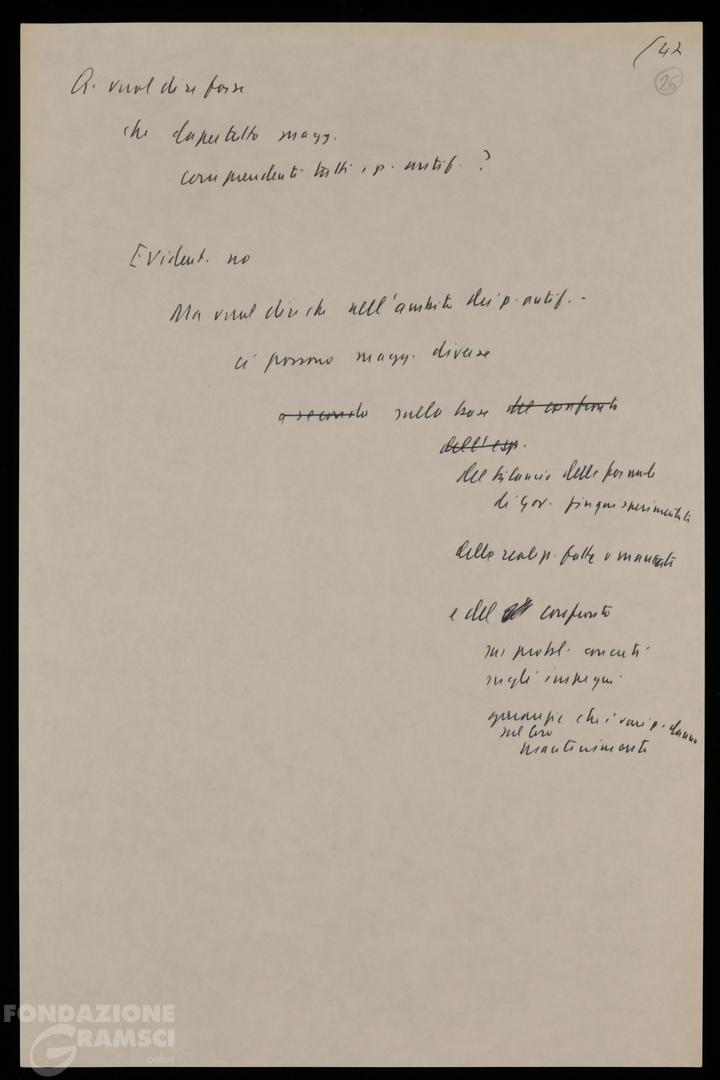 /42
26
Q. vuol dire forse
che dapertutto magg.
comprendenti tutti i p. antif. ?
Evident. no
Ma vuol dire che nell'ambito dei p. antif. -
ci possono magg. diverse
a seconda sulla base del confronto
dell'esp.
del bilancio delle formule
di Gov. fin qui sperimentate
delle realizz. fatte o mancate
e del confronto
sui probl. concreti
sugli impegni
garanzie che i vari p. danno
sul loro
mantenimento
FONDAZIONE
GRAMSCI
onlus